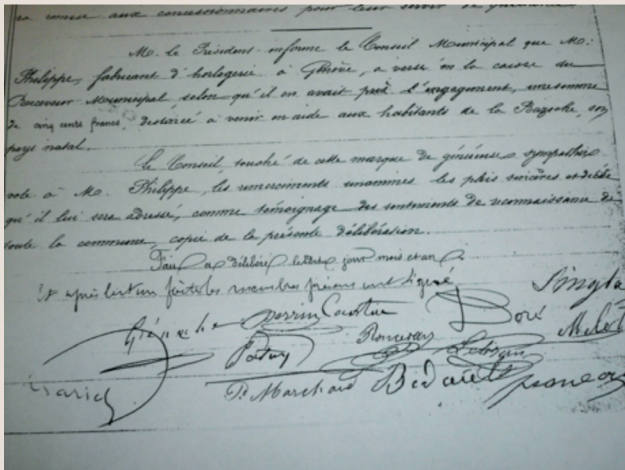 la remise aux concessionnaires pour leur servir de quittance.
M. le Président informe le Conseil Municipal que M.
Philippe, fabricant d'horlogerie à Genève, a versé en la caisse du
Receveur Municipal, selon qu'il en avait pris l'engagement, une somme
de cinq cents francs, destinée à venir en aide aux habitants de la Bazoche, son
pays natal.
Le Conseil, touché de cette marque de généreuse sympathie
vote à M. Philippe, les remerciments unanimes les plus sincères et décide
qu'il lui sera adressé, comme témoignage des sentiments de reconnaissance de
toute la commune, copie de la présente délibération.
Fait et délibéré lesdits jour mois et an.
Et après lecture faite les membres présents ont signé.
Perrin Doré
Melot
P. Marchand